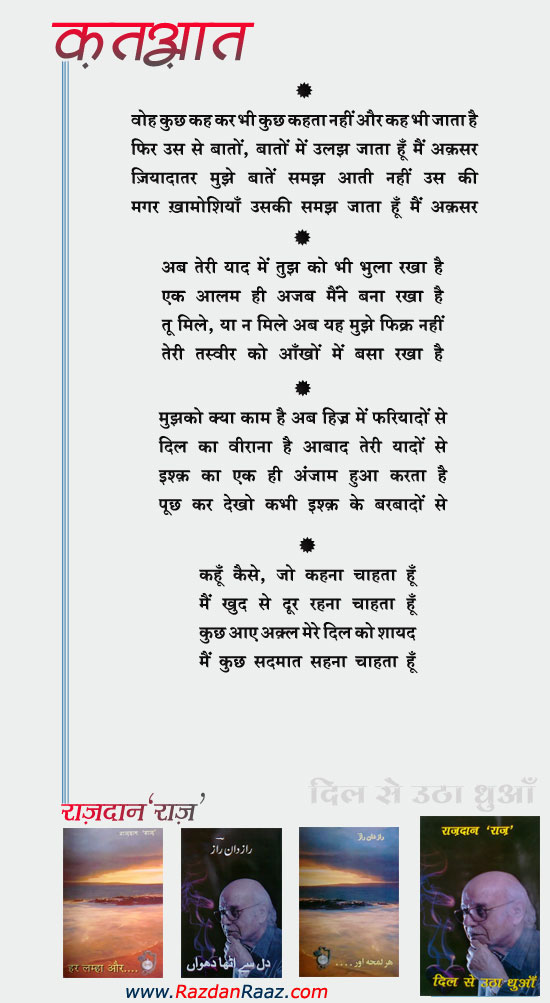 क़तआ़त
वोह कुछ कह कर भी कुछ कहता नहीं और कह भी जाता है
फिर उस से बातों, बातों में उलझ जाता हूँ मैं अक़सर
ज़ियादातर मुझे बातें समझ आती नहीं उस की
मगर ख़ामोशियाँ उसकी समझ जाता हूँ मैं अक़सर
अब तेरी याद में तुझ को भी भुला रखा है
एक आलम ही अजब मैंने बना रखा है
तू मिले, या न मिले अब यह मुझे फिक्र नहीं
तेरी तस्वीर को आँखों में बसा रखा है
मुझको क्या काम है अब हिज्र में फरियादों से
दिल का वीराना है आबाद तेरी यादों से
इश्क़ का एक ही अंजाम हुआ करता है
पूछ कर देखो कभी इश्क़ के बरबादों से
कहूँ कैसे, जो कहना चाहता हूँ
मैं खुद से दूर रहना चाहता हूँ
कुछ आए अक़्ल मेरे दिल को शायद
मैं कुछ सदमात सहना चाहता हूँ
दिल से उठा धुआँ
राज़दान ‘राज़’
राज़दान ‘राज़’
हर लम्हा और....
رازدان رازؔ
دل سے اٹھا دھواں
رازدان راز
ہر لمحہ اور ....
राज़दान ‘राज़’
दिल से उठा धुआँ
www.RazdanRaaz.com